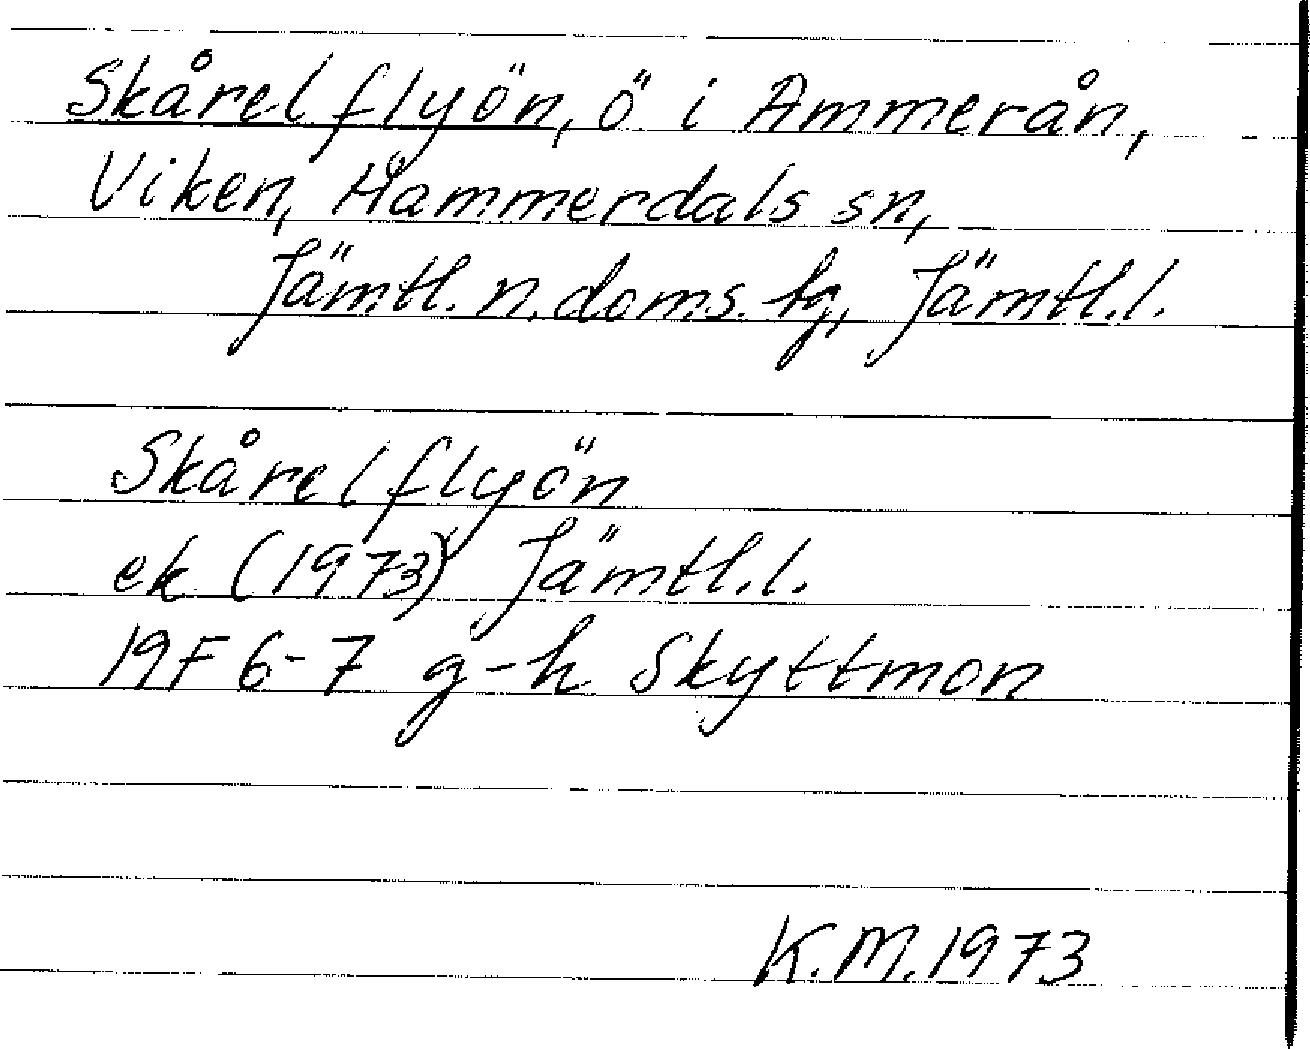 Skårelflyön, ö i Ammerån,
Viken, Hammerdals sn,
Jämtl. n. doms. tg, Jämtl. l.
Skårelflyön
ek (1973) Jämtl. l.
19F 6-7 g-h Skyttmon
K.M. 1973